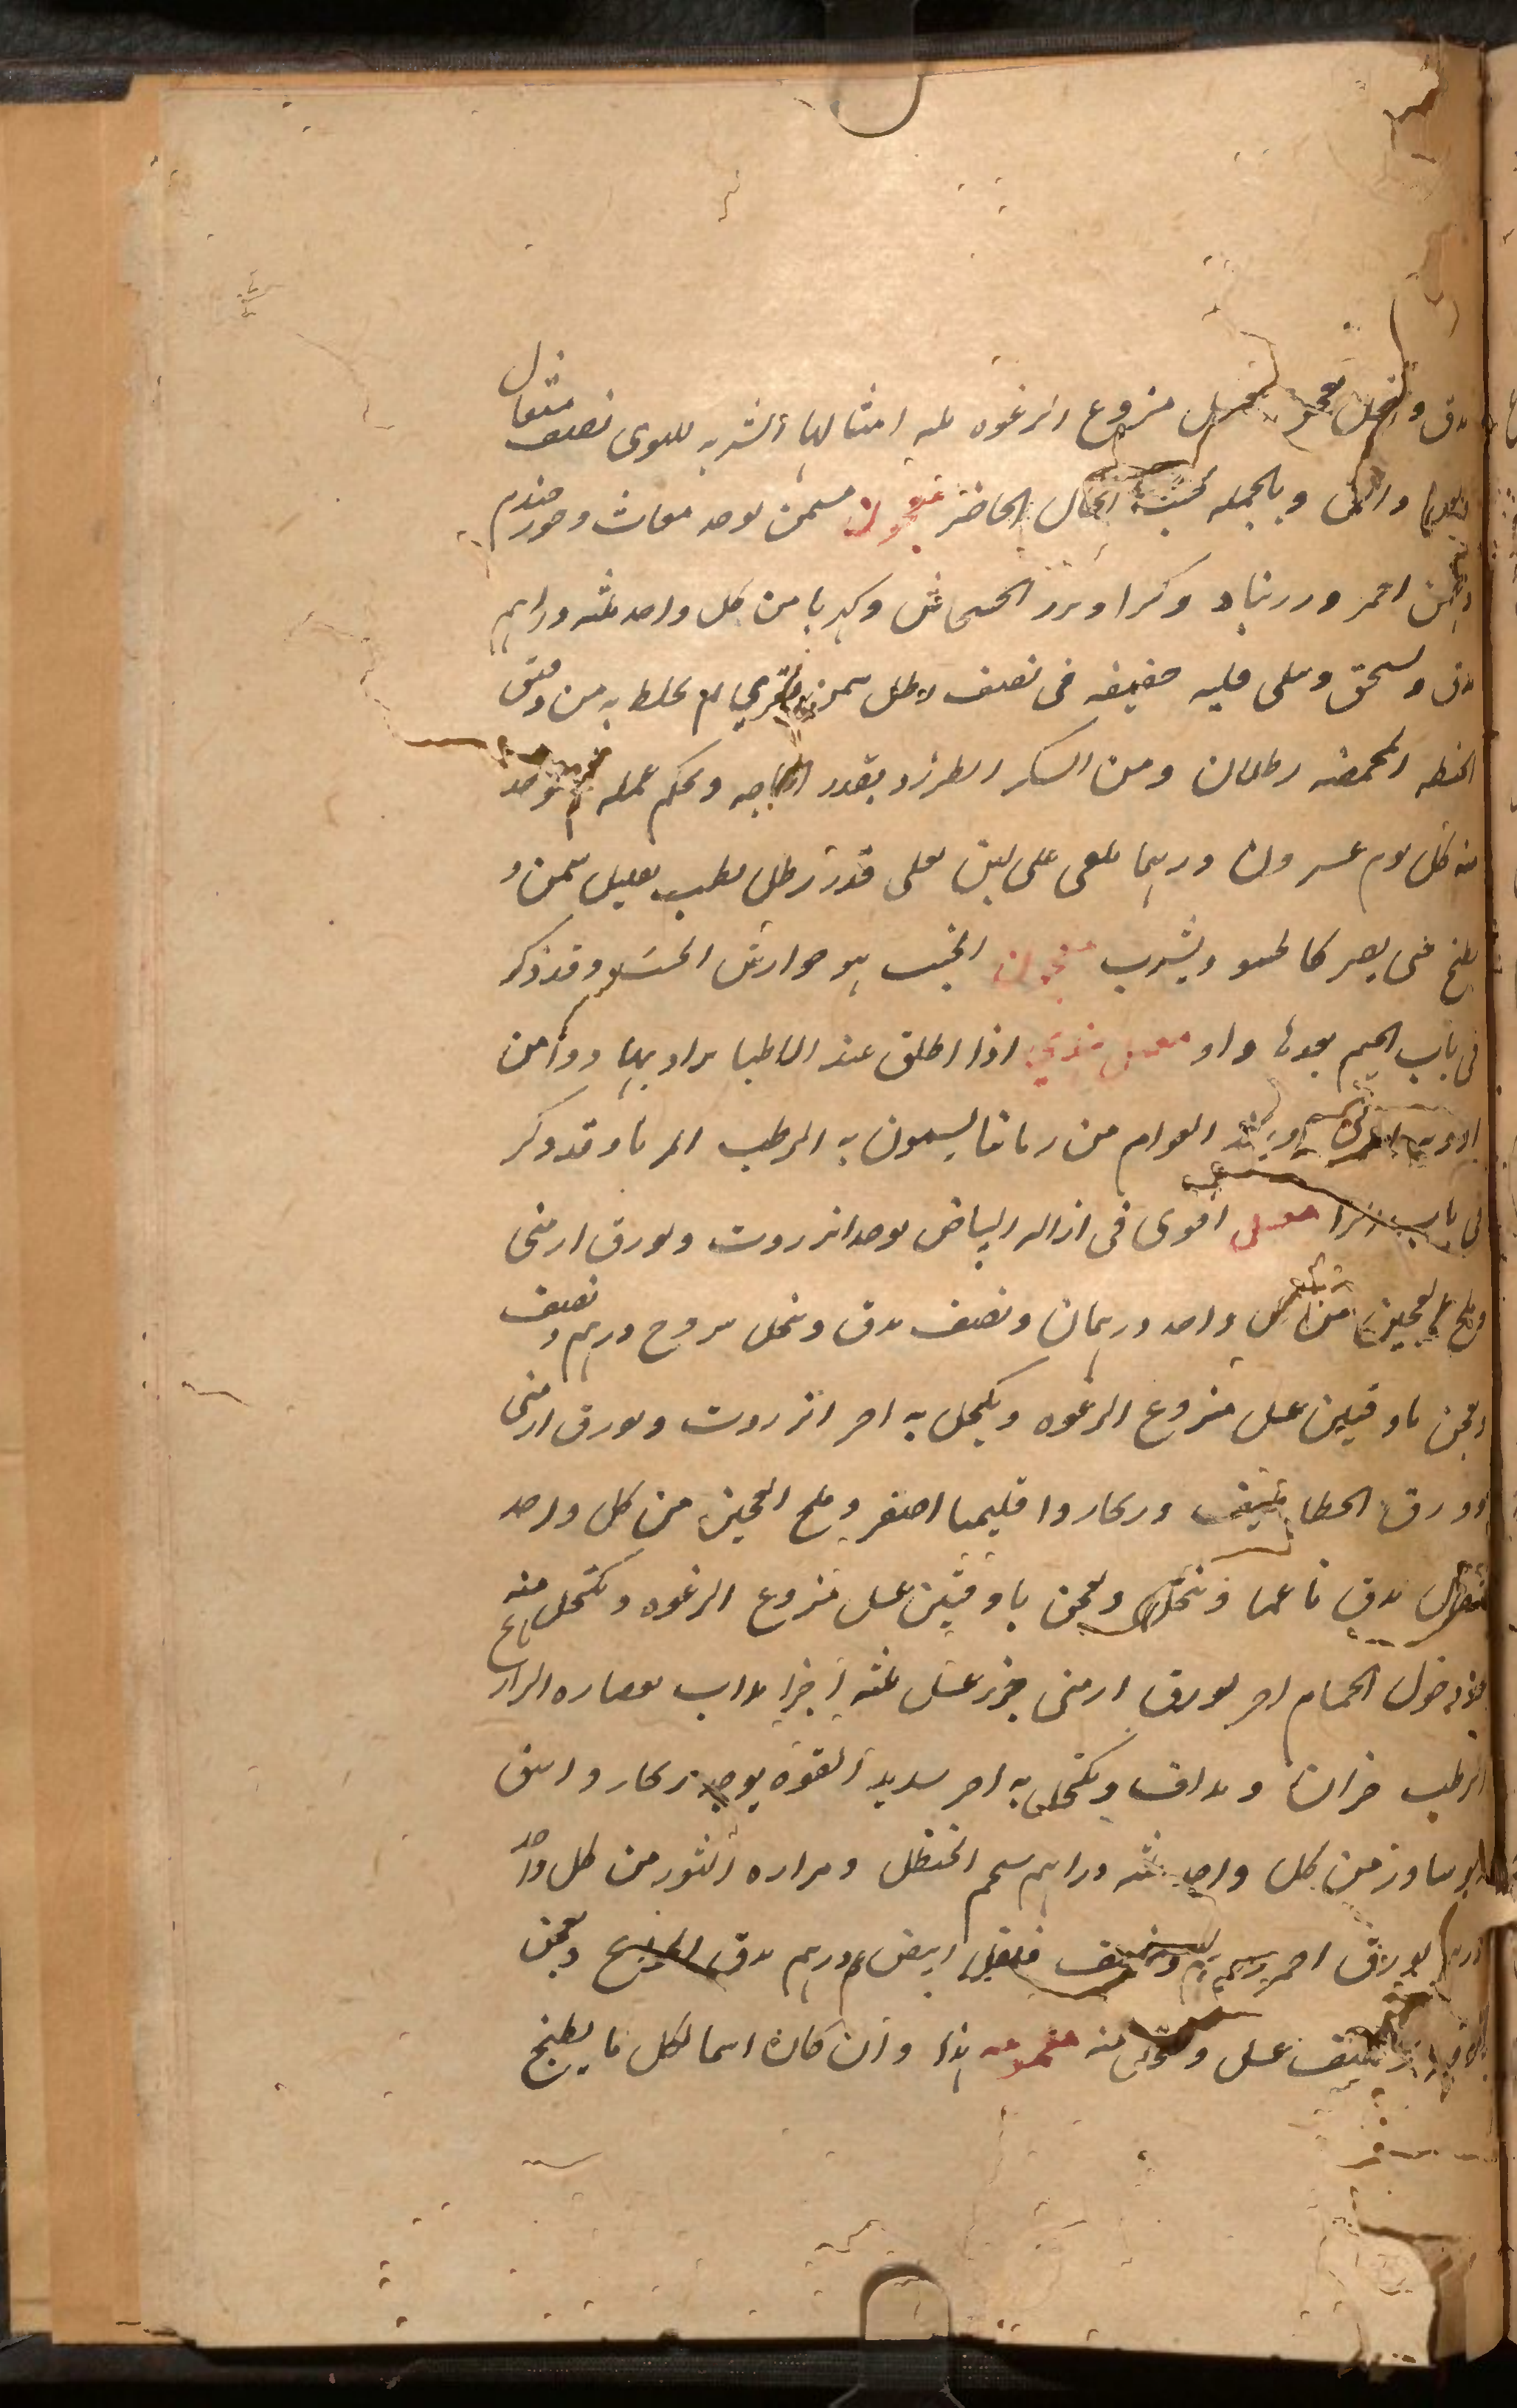 يدق وينخل ويعجن بعسل منزوع الرغوه ثلثه امثالها الشربه للقوى نصف مثقال
وبالجمله بحسب الحال الحاضر معجون مسمن يوخذ مغاث وجوز جندم
وبهمن احمر وزرنباد وكثيرا وبزر الخشخاش وكهربا من كل واحد ثلثه دراهم
يدق ويسحق ويقلى قليه خفيفه فى نصف رطل سمن بقري ثم يخلط به من دقيق
الحنطه المحمصه رطلان ومن السكر الطبرزد بقدر الحاجه ويحكم عمله ثم يوخذ
منه كل يوم عشرون وربما يلقى على لبن يغلى قدر رطل حليب بقليل سمن و
يطبخ حتى يصير كالحسو ويشرب معجون الخبث هو جوارش الخبث وقد ذكر
فى باب الجيم بعدها واو معسل هندي اذا اطلق عند الاطبا يراد بها دوآ من
العوام من زماننا يسمون به الرطب المربا وقد ذكر
فى باب الرا معسل اقوى فى ازاله البياض يوخذ انزروت وبورق ارمنى
وملح العجين من كل واحد درهمان ونصف يدق وينخل درهم ونصف
ويعجن باوقيتين عسل منزوع الرغوه ويكتحل به اخر انزروت وبورق ارمنى
وزرق الخطاطيف وزنجار واقليميا اصفر وملح العجين من كل واحد
مثقال يدق ناعما وينخل ويعجن باوقيتين عسل منزوع الرغوه ويكتحل منه
بعد دخول الحمام اخر بورق ارمنى جزء عسل ثلثه اجزا يداب بعصاره الرازيانج
الرطب ويداف ويكتحل به اخر شديد القوه يوخذ زنجار واشق
من كل واحد ثلثه دراهم شحم الحنظل ومراره الثور من كل واحد
درهم بورق احمر درهم ونصف فلفل ابيض درهم يدق الجميع ويعجن
عسل ويكتحل منه هذا وان كان اسما لكل ما يطبخ